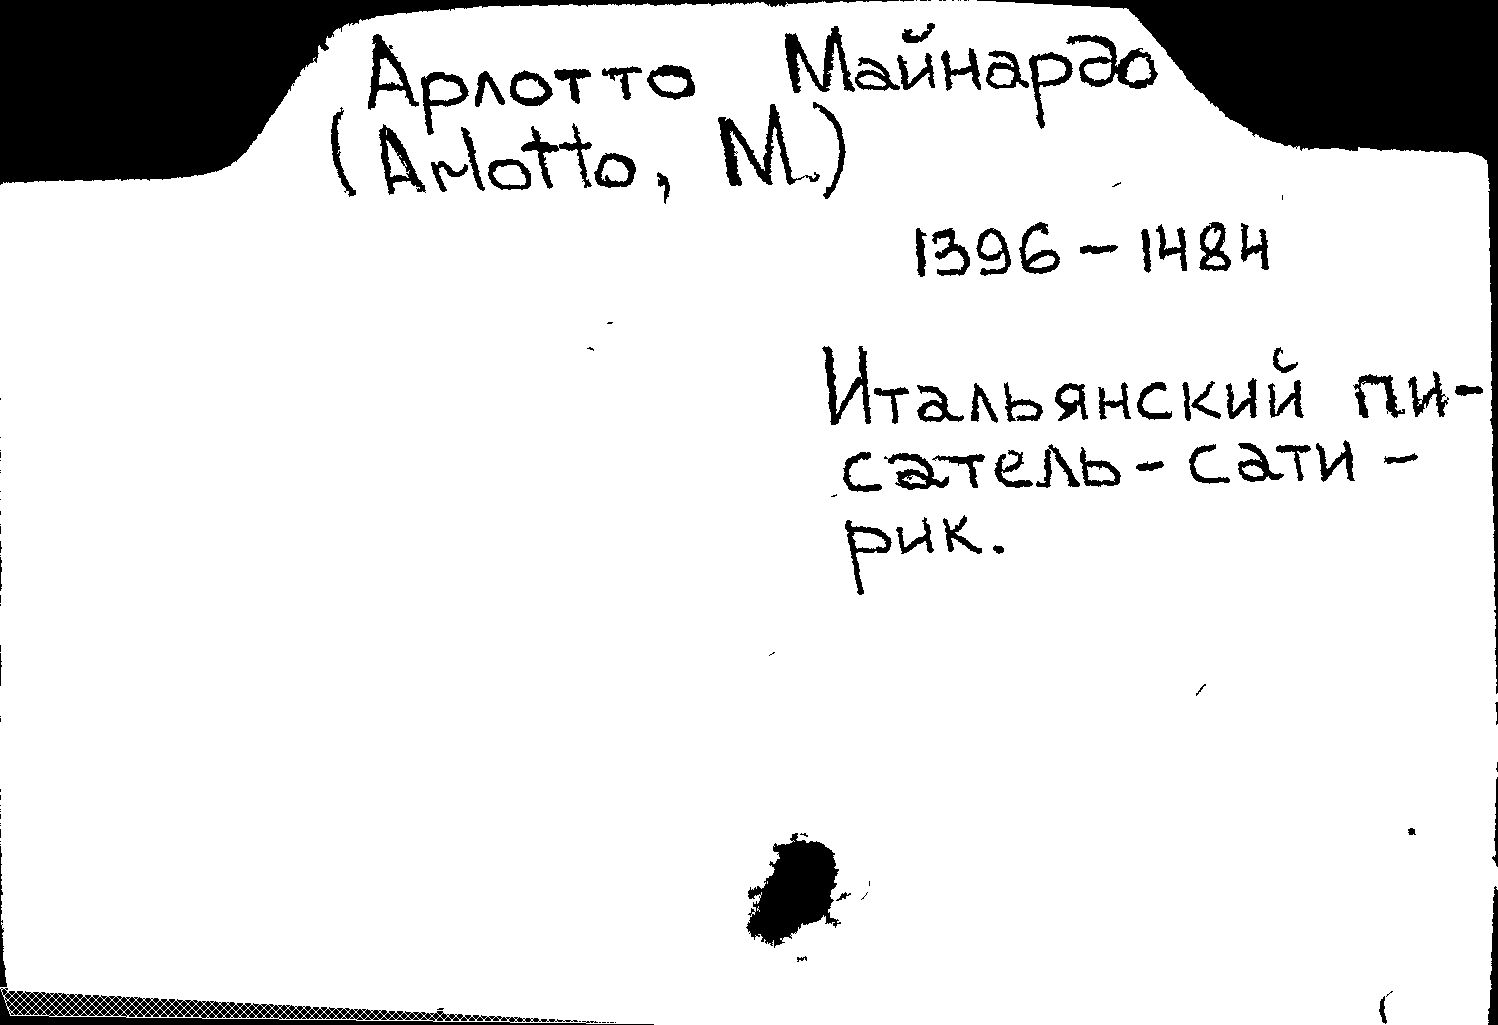 Арлотто Майнардо
(Arlotto, M.)
1396 - 1484
Итальянский пи-
сатель - сати -
рик.